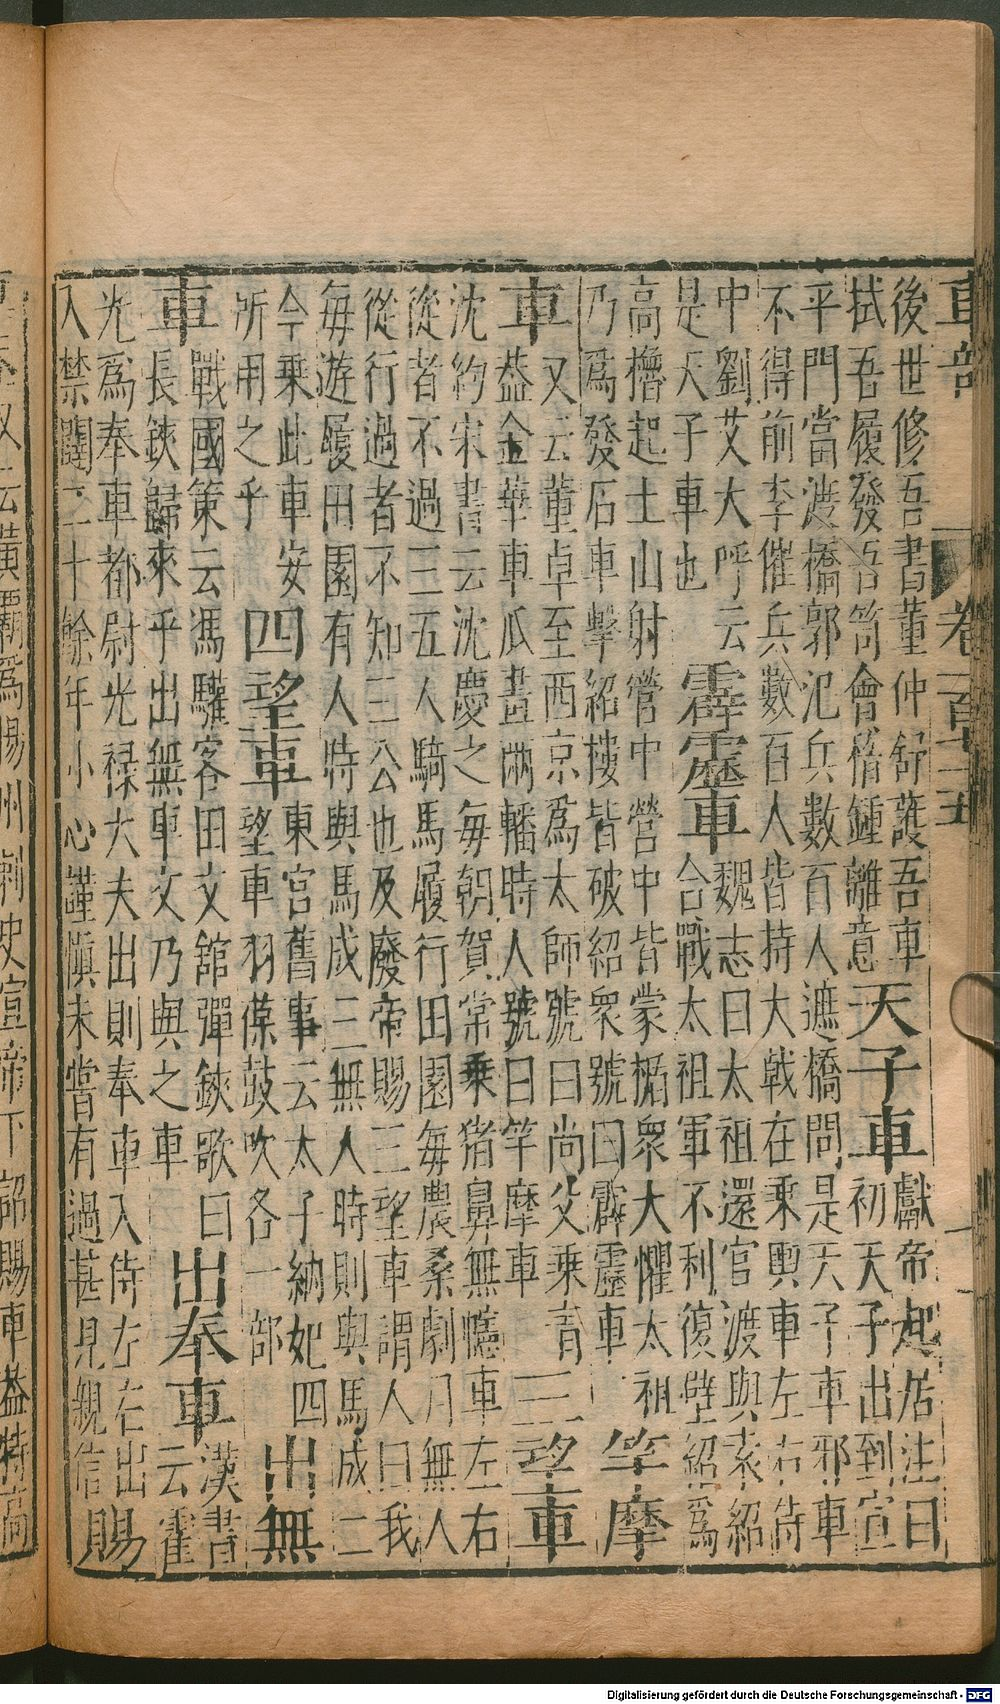 車部
卷一百十五
後世修吾書董仲舒護吾車
拭吾履發吾笥會稽鍾離意
天子車
獻帝起居注曰
初天子出到宣
平門當渡橋郭汜兵數百人遮橋問是天子車邪車
不得前李傕兵數百人皆持大戟在乘輿車左右侍
中劉艾大呼云
是天子車也
霹靂車
魏志曰太祖還官渡與袁紹
合戰太祖軍不利復壁紹爲
高櫓起土山射營中營中皆蒙楯衆大懼太祖
乃爲發石車擊紹樓皆破紹衆號曰霹靂車
竿摩
車
又云董卓至西京爲太師號曰尚父乘青
蓋金華車瓜畫兩轓時人號曰竿摩車
三望車
沈約宋書云沈慶之每朝賀常乘猪鼻無幰車左右
從者不過三五人騎馬履行田園每農桑劇月無人
從行過者不知三公也及廢帝賜三望車謂人曰我
每遊履田園有人時與馬成三無人時則與馬成二
今乘此車安
所用之乎
四望車
東宮舊事云太子納妃四
望車羽葆鼓吹各一部
出無
車
戰國策云馮驩客田文舘彈鋏歌曰
長鋏歸來乎出無車文乃與之車
出奉車
漢書
云霍
光爲奉車都尉光祿大夫出則奉車入侍左右出
入禁闥二十餘年小心謹愼未嘗有過甚見親信
賜
又云黃霸爲揚州刺史宣帝下詔賜車蓋特高
Digitalisierung gefördert durch die Deutsche Forschungsgemeinschaft - DFG